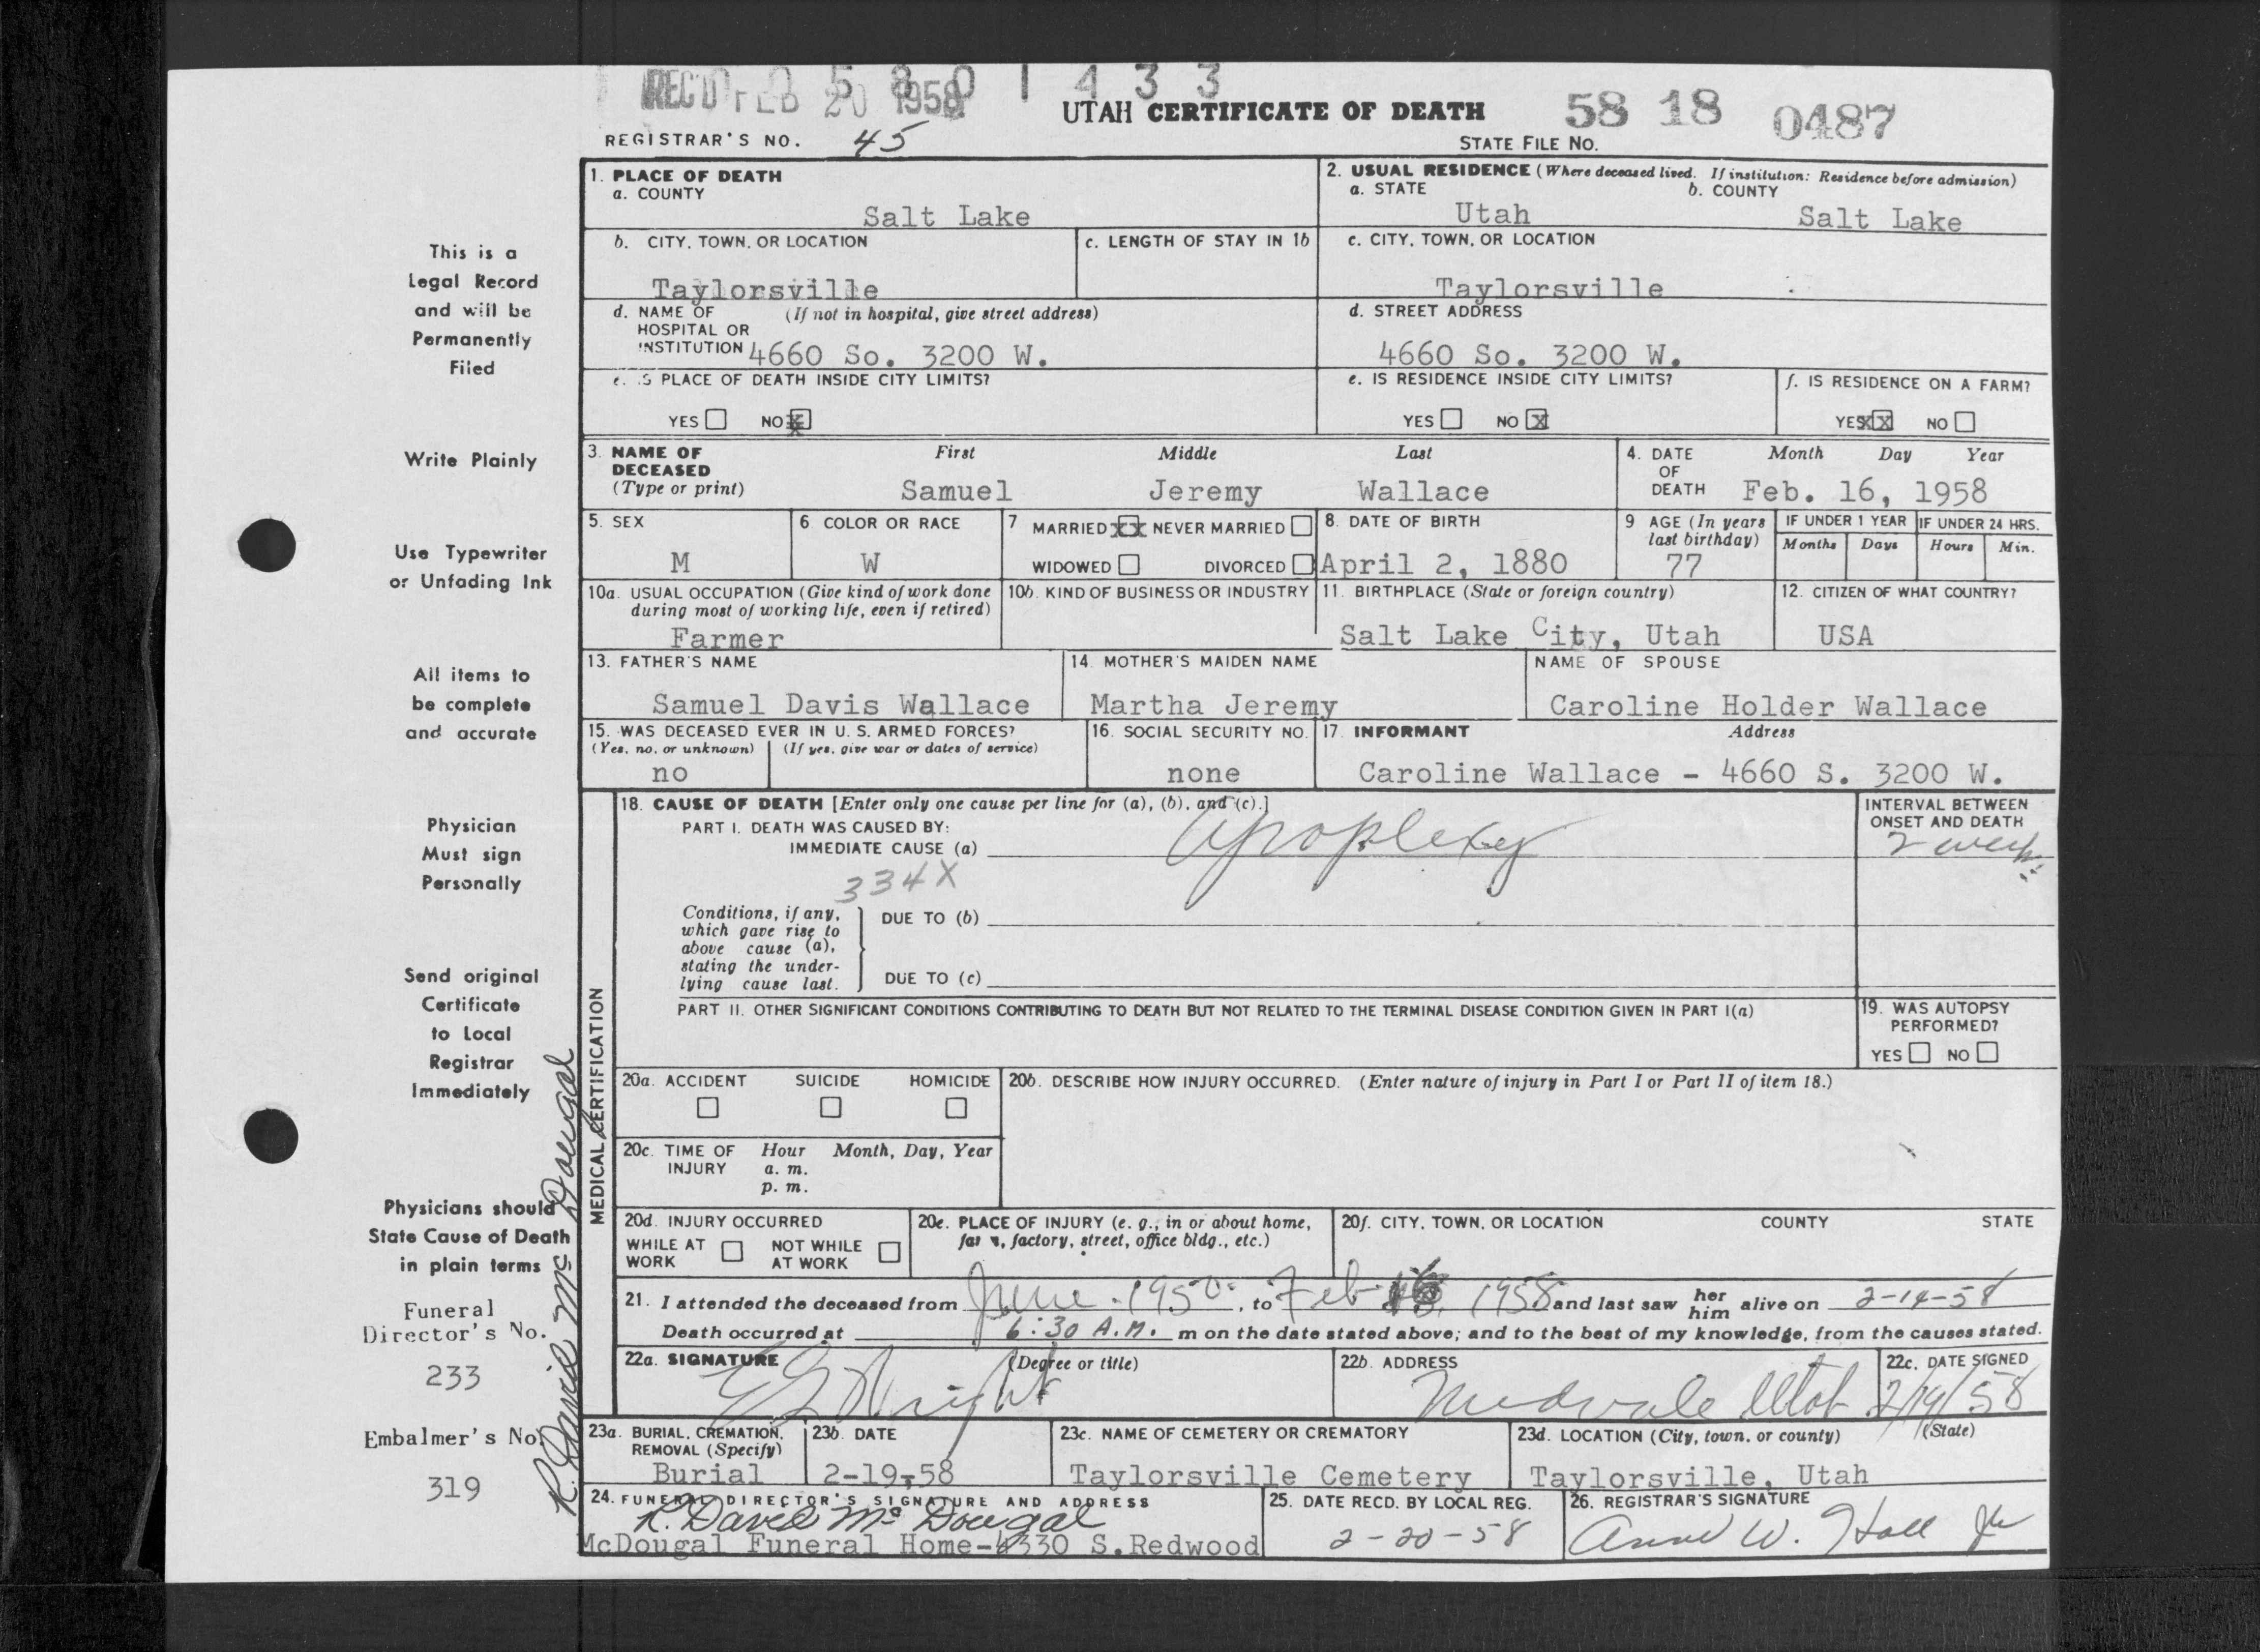 REC'D FEB 20 1958
0 5 8 0 1 4 3 3
UTAH CERTIFICATE OF DEATH
58 18 0487
REGISTRAR'S NO. 45
STATE FILE NO.
1. PLACE OF DEATH
a. COUNTY
Salt Lake
2. USUAL RESIDENCE (Where deceased lived. If institution: Residence before admission)
a. STATE b. COUNTY
Utah Salt Lake
b. CITY, TOWN, OR LOCATION
Taylorsville
c. LENGTH OF STAY IN 1b
c. CITY, TOWN, OR LOCATION
Taylorsville
d. NAME OF (If not in hospital, give street address)
HOSPITAL OR
INSTITUTION 4660 So. 3200 W.
d. STREET ADDRESS
4660 So. 3200 W.
e. IS PLACE OF DEATH INSIDE CITY LIMITS?
YES NO X
e. IS RESIDENCE INSIDE CITY LIMITS?
YES NO X
f. IS RESIDENCE ON A FARM?
YES XX NO
3. NAME OF DECEASED
(Type or print)
First Middle Last
Samuel Jeremy Wallace
4. DATE OF DEATH
Month Day Year
Feb. 16, 1958
5. SEX
M
6 COLOR OR RACE
W
7 MARRIED XX NEVER MARRIED
WIDOWED DIVORCED
8. DATE OF BIRTH
April 2, 1880
9 AGE (In years
last birthday)
77
IF UNDER 1 YEAR IF UNDER 24 HRS.
Months Days Hours Min.
10a. USUAL OCCUPATION (Give kind of work done
during most of working life, even if retired)
Farmer
10b. KIND OF BUSINESS OR INDUSTRY
11. BIRTHPLACE (State or foreign country)
Salt Lake City, Utah
12. CITIZEN OF WHAT COUNTRY?
USA
13. FATHER'S NAME
Samuel Davis Wallace
14. MOTHER'S MAIDEN NAME
Martha Jeremy
NAME OF SPOUSE
Caroline Holder Wallace
15. WAS DECEASED EVER IN U. S. ARMED FORCES?
(Yes, no, or unknown) (If yes, give war or dates of service)
no
16. SOCIAL SECURITY NO.
none
17. INFORMANT Address
Caroline Wallace - 4660 S. 3200 W.
MEDICAL CERTIFICATION
18. CAUSE OF DEATH [Enter only one cause per line for (a), (b), and (c).]
PART I. DEATH WAS CAUSED BY:
IMMEDIATE CAUSE (a) Apoplexy
334X
INTERVAL BETWEEN
ONSET AND DEATH
2 weeks
Conditions, if any,
which gave rise to
above cause (a),
stating the under-
lying cause last.
DUE TO (b)
DUE TO (c)
PART II. OTHER SIGNIFICANT CONDITIONS CONTRIBUTING TO DEATH BUT NOT RELATED TO THE TERMINAL DISEASE CONDITION GIVEN IN PART I(a)
19. WAS AUTOPSY
PERFORMED?
YES NO
20a. ACCIDENT SUICIDE HOMICIDE
20b. DESCRIBE HOW INJURY OCCURRED. (Enter nature of injury in Part I or Part II of item 18.)
20c. TIME OF INJURY
Hour Month, Day, Year
a. m.
p. m.
20d. INJURY OCCURRED
WHILE AT WORK NOT WHILE AT WORK
20e. PLACE OF INJURY (e. g., in or about home,
farm, factory, street, office bldg., etc.)
20f. CITY, TOWN, OR LOCATION COUNTY STATE
21. I attended the deceased from June 1950, to Feb 16, 1958 and last saw her him alive on 2-14-58
Death occurred at 6:30 A.M. m on the date stated above; and to the best of my knowledge, from the causes stated.
22a. SIGNATURE (Degree or title)
E G Wright
22b. ADDRESS
Midvale Utah
22c. DATE SIGNED
2/19/58
23a. BURIAL, CREMATION,
REMOVAL (Specify)
Burial
23b. DATE
2-19-58
23c. NAME OF CEMETERY OR CREMATORY
Taylorsville Cemetery
23d. LOCATION (City, town, or county) (State)
Taylorsville, Utah
24. FUNERAL DIRECTOR'S SIGNATURE AND ADDRESS
R. David McDougal
McDougal Funeral Home-4330 S.Redwood
25. DATE RECD. BY LOCAL REG.
2-20-58
26. REGISTRAR'S SIGNATURE
W. Hall
This is a
Legal Record
and will be
Permanently
Filed
Write Plainly
Use Typewriter
or Unfading Ink
All items to
be complete
and accurate
Physician
Must sign
Personally
Send original
Certificate
to Local
Registrar
Immediately
Physicians should
State Cause of Death
in plain terms
Funeral
Director's No.
233
Embalmer's No.
319
R. David McDougal